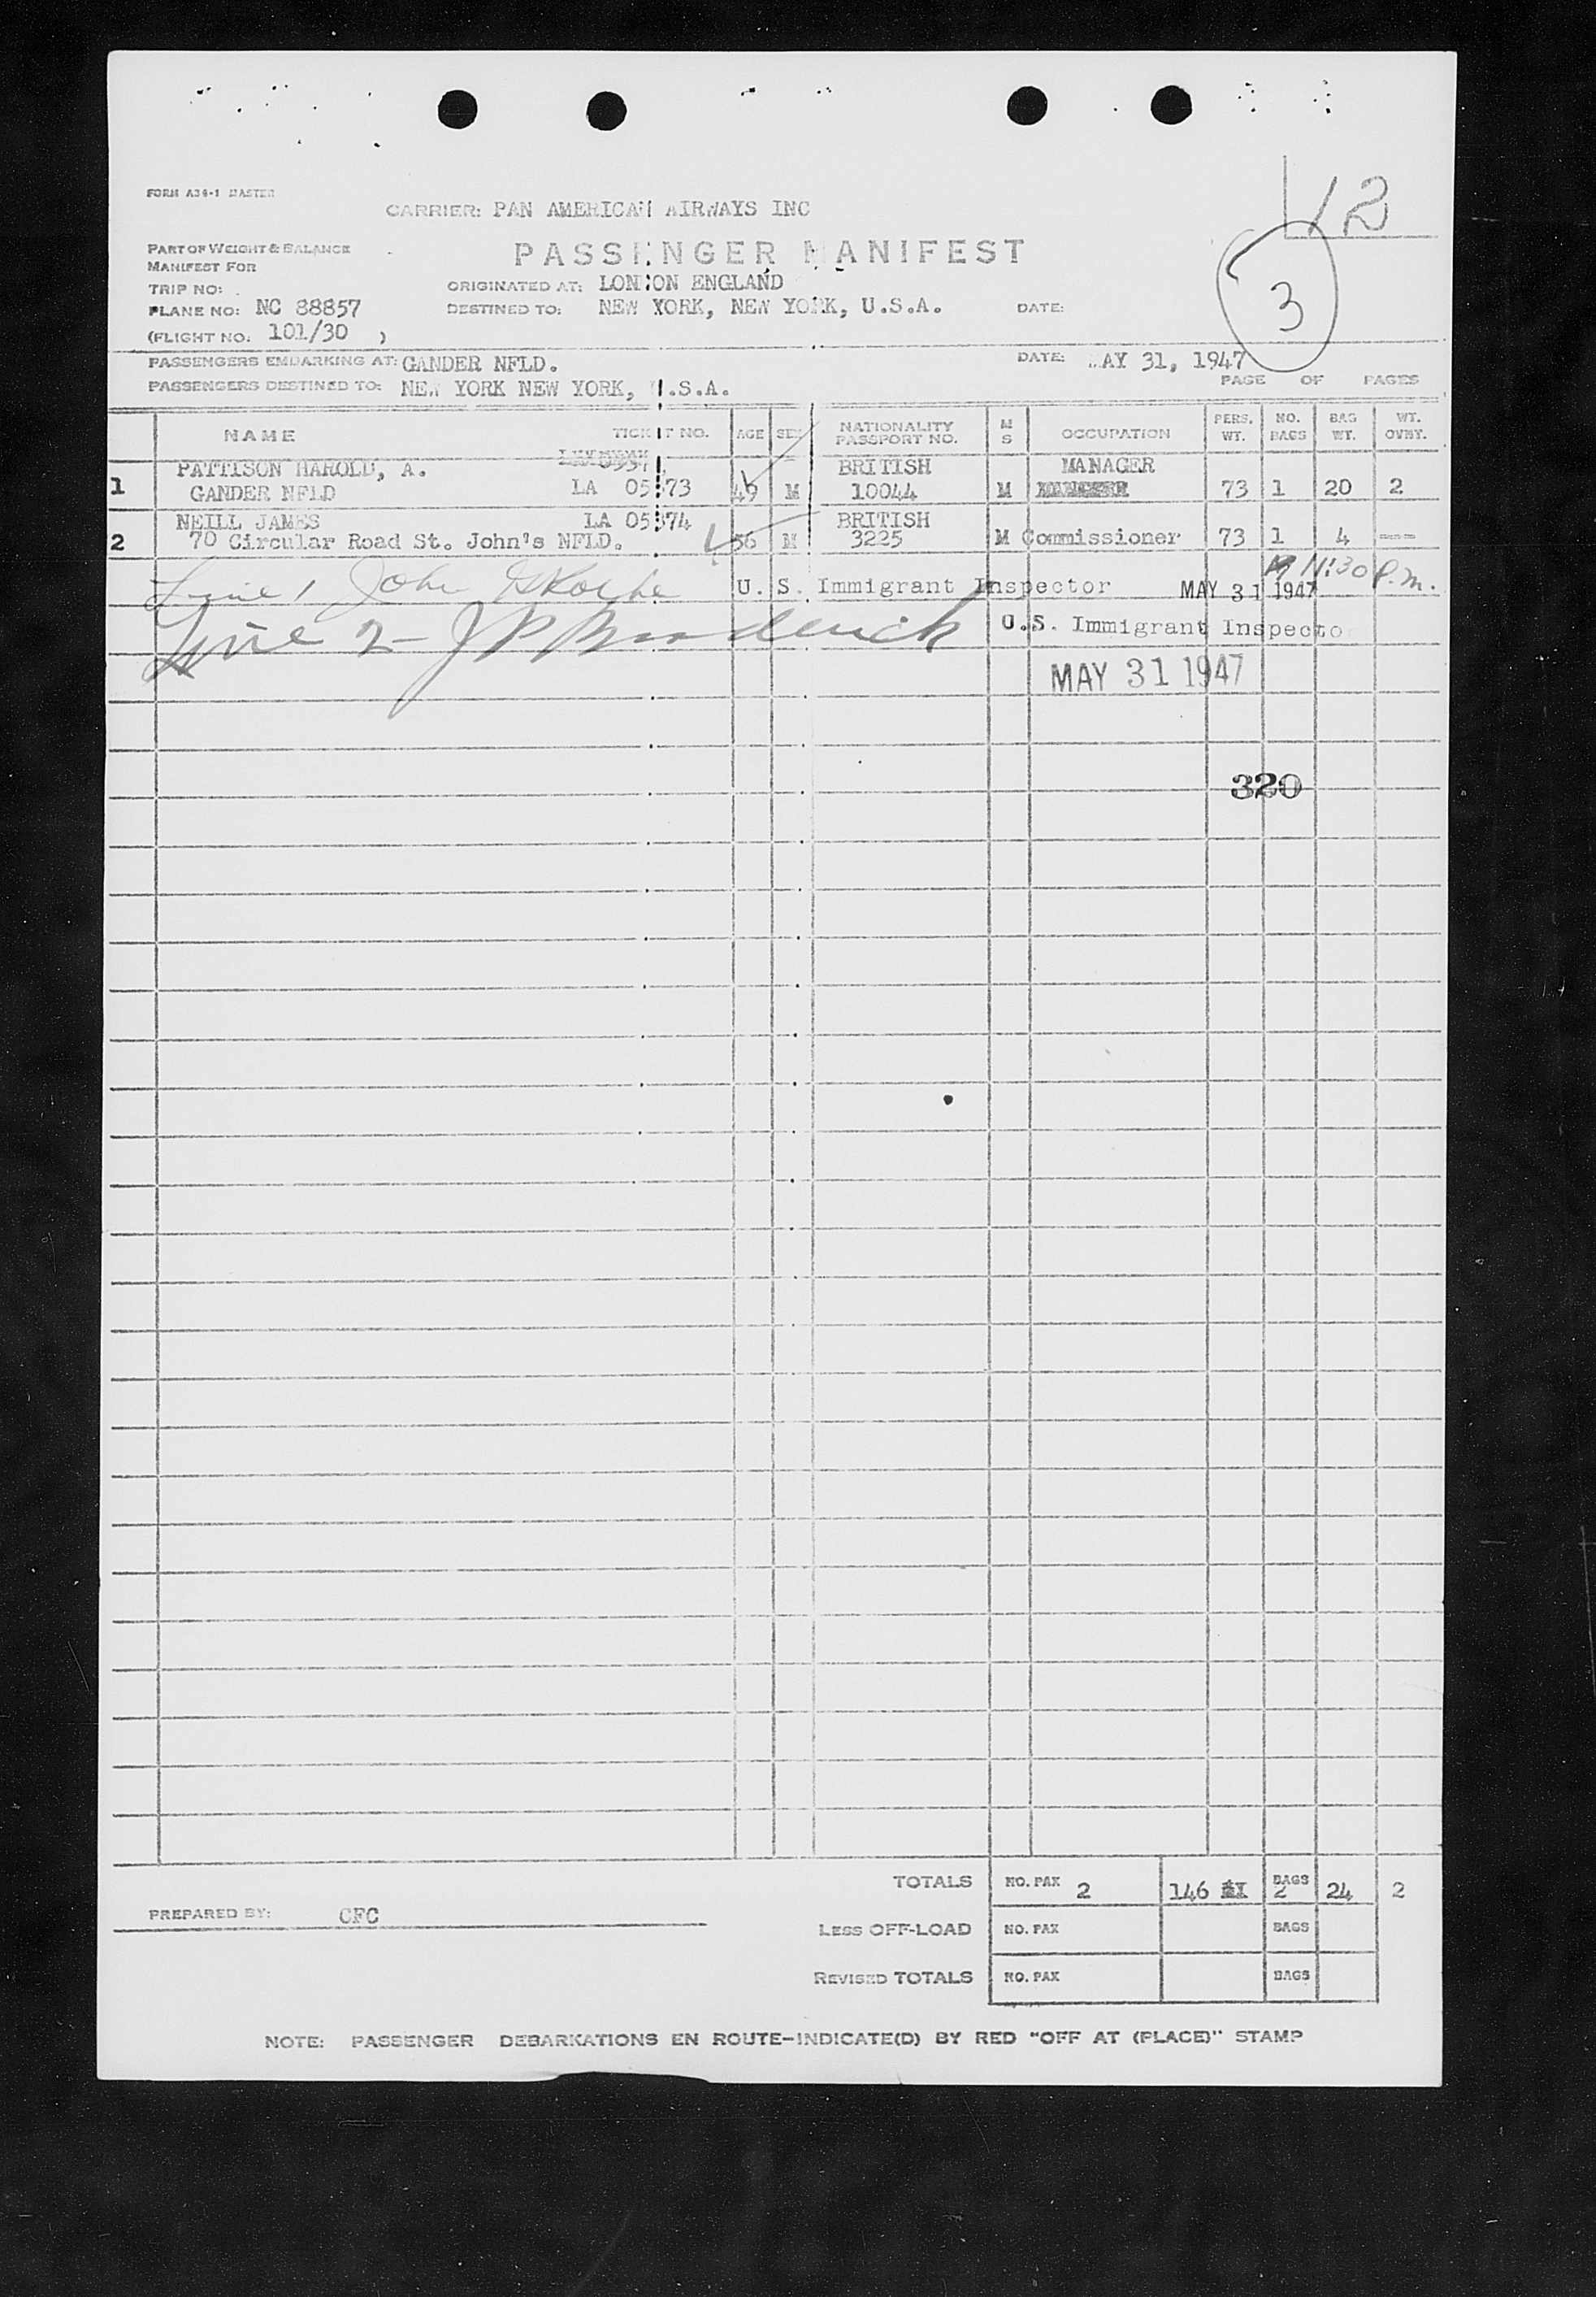 12
FORM A34-1 MASTER
CARRIER: PAN AMERICAN AIRWAYS INC
PART OF WEIGHT & BALANCE
MANIFEST FOR
PASSENGER MANIFEST
3
TRIP NO:
ORIGINATED AT: LONDON ENGLAND
PLANE NO: NC 88857
DESTINED TO: NEW YORK, NEW YORK, U.S.A.
DATE:
(FLIGHT NO: 101/30 )
PASSENGERS EMBARKING AT: GANDER NFLD.
DATE: MAY 31, 1947
PASSENGERS DESTINED TO: NEW YORK NEW YORK, U.S.A.
PAGE OF PAGES
NAME TICKET NO. AGE SEX NATIONALITY PASSPORT NO. M S OCCUPATION PERS. WT. NO. BAGS BAG WT. WT. OVRT.
PATTISON HAROLD, A. BRITISH MANAGER
1 GANDER NFLD LA 05373 49 M 10044 M 73 1 20 2
NEILL JAMES LA 05374 BRITISH
2 70 Circular Road St. John's NFLD. 56 M 3225 M Commissioner 73 1 4 ---
11:30 P.m.
Line 1 John U. S. Immigrant Inspector MAY 31 1947
Line 2 - J P Broderick U.S. Immigrant Inspecto
MAY 31 1947
320
TOTALS NO. PAX 2 146 BAGS 2 24 2
PREPARED BY: CFC
LESS OFF-LOAD NO. PAX BAGS
REVISED TOTALS NO. PAX BAGS
NOTE: PASSENGER DEBARKATIONS EN ROUTE-INDICATE(D) BY RED "OFF AT (PLACE)" STAMP